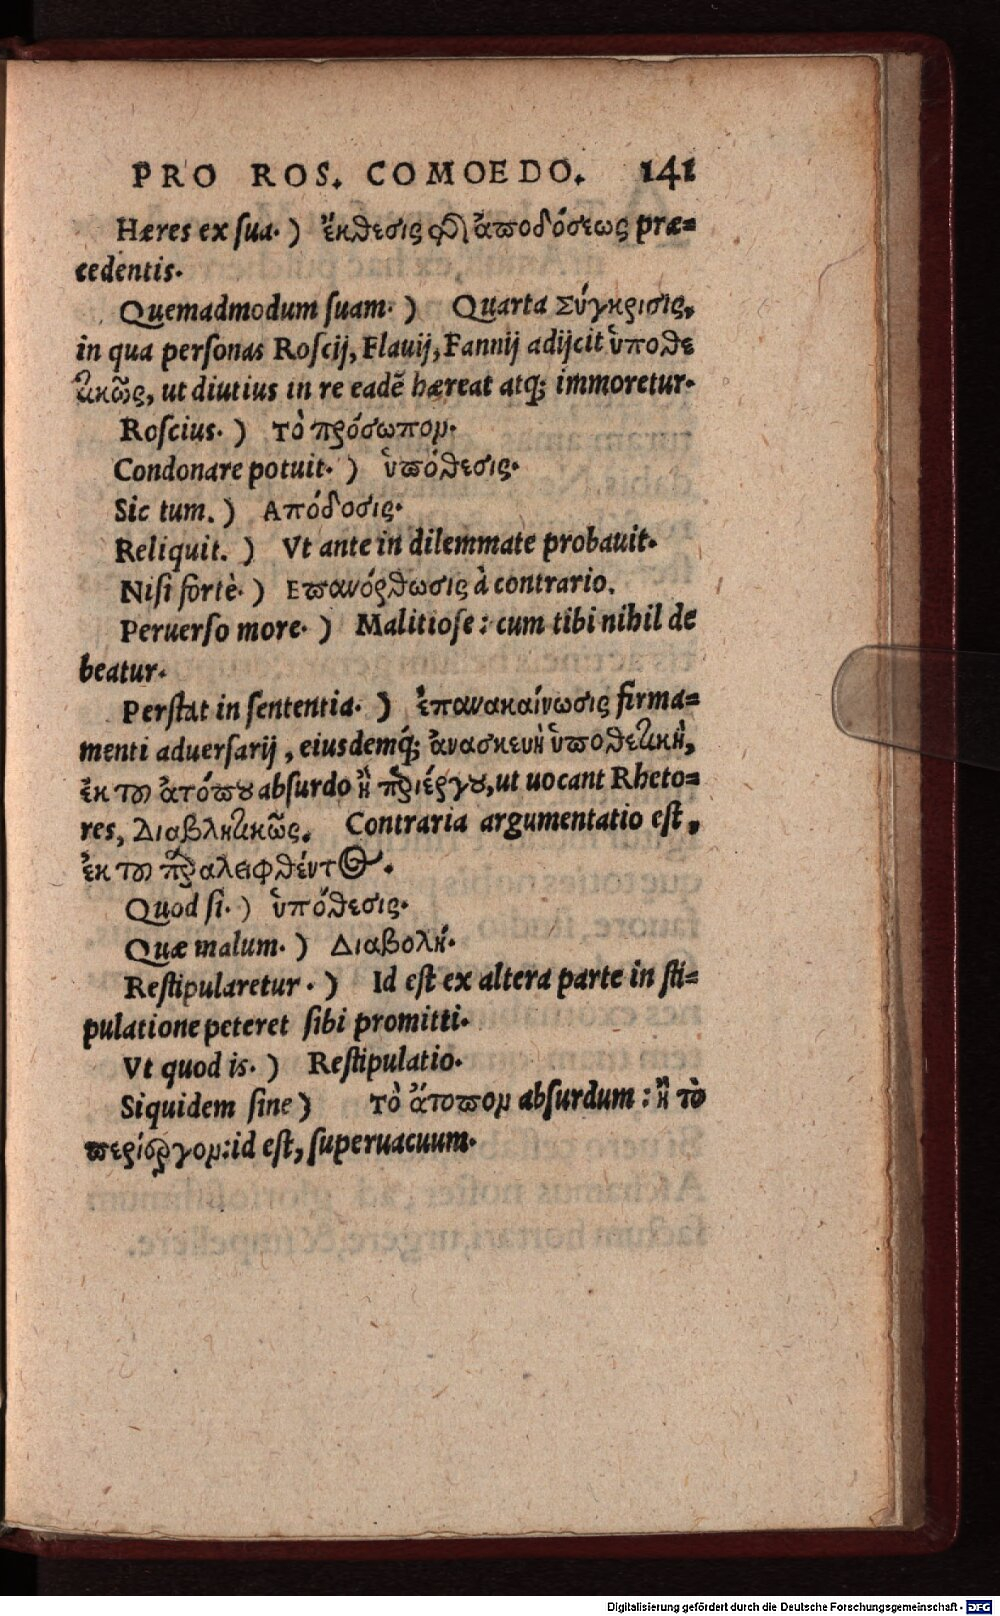 PRO ROS. COMOEDO. 141
Hæres ex ſua. ) ἔκθεσις ἀποδόσεως præ=
cedentis.
Quemadmodum ſuam. ) Quarta Σύγκρισις,
in qua perſonas Roſcij, Flauij, Fannij adijcit ὑποθε
τικῶς, ut diutius in re eadē hæreat atq; immoretur.
Roſcius. ) τὸ πρόσωπομ.
Condonare potuit. ) ὑπόθεσις.
Sic tum. ) Απόδοσις.
Reliquit. ) Vt ante in dilemmate probauit.
Niſi fortè. ) Επανόρθωσις à contrario.
Peruerſo more. ) Malitioſe: cum tibi nihil de
beatur.
Perſtat in ſententia. ) ἐπανακαίνωσις firma=
menti aduerſarij, eiusdemq́; ἀνασκευὴ ὑποθετικὴ,
ἐκ τοῦ ἀτόπου abſurdo ἢ περιέργου, ut uocant Rheto=
res, Διαβλητικῶς. Contraria argumentatio eſt,
ἐκ τοῦ παραλειφθέντος.
Quod ſi. ) ὑπόθεσις.
Quæ malum. ) Διαβολή.
Reſtipularetur. ) Id eſt ex altera parte in ſti=
pulatione peteret ſibi promitti.
Vt quod is. ) Reſtipulatio.
Siquidem ſine ) τὸ ἄτοπομ abſurdum: ἢ τὸ
περίεργομ: id eſt, ſuperuacuum.
Digitalisierung gefördert durch die Deutsche Forschungsgemeinschaft - DFG